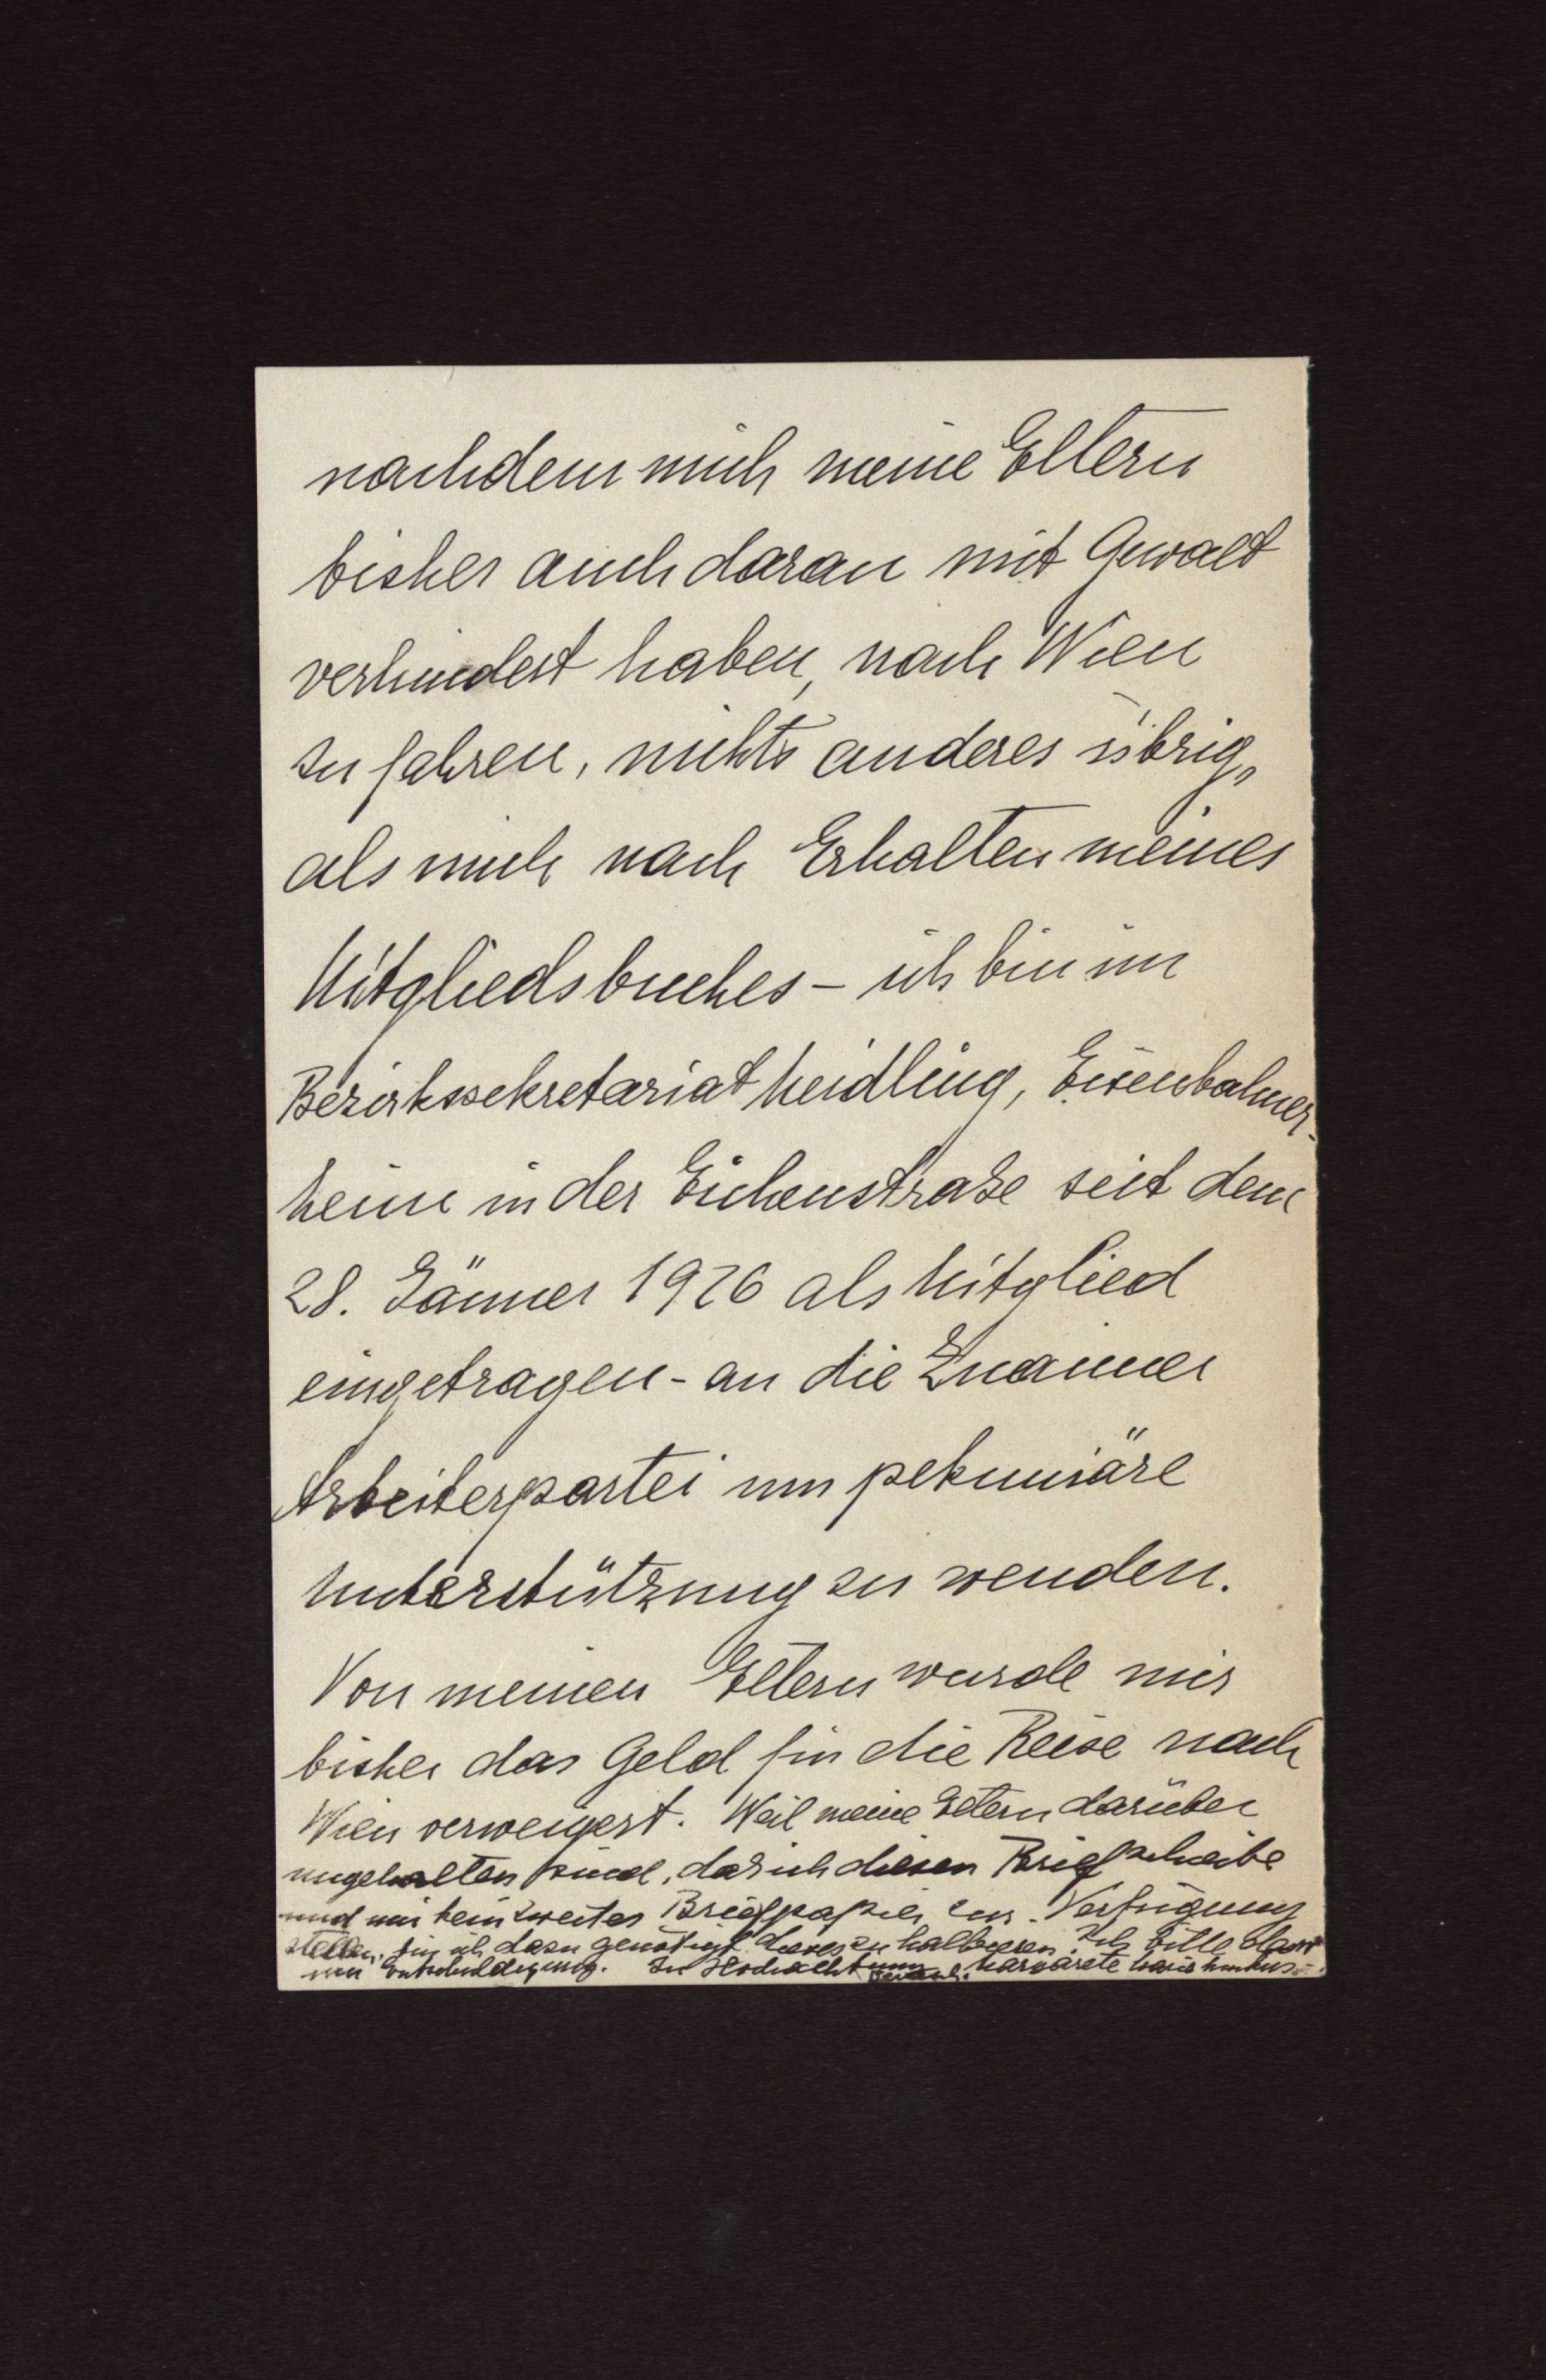 nachdem mich meine Eltern
bisher auch daran mit Gewalt
verhindert haben, nach Wien
zu fahren, nichts anderes übrig,
als mich nach Erhalten meines
Mitgliedsbuches - ich bin im
Bezirkssekretariat Meidling, Eisenbahner-
heim in der Eichenstraße seit dem
28. Jänner 1926 als Mitglied
eingetragen - an die Znaimer
Arbeiterpartei um pekuniäre
Unterstützung zu wenden.
Von meinen Eltern wurde mir
bisher das Geld für die Reise nach
Wien verweigert. Weil meine Eltern darüber
ungehalten sind, daß ich diesen Brief schreibe
und mir kein zweites Briefpapier zur Verfügung
stellen, bin ich dazu genötigt dieses zu halbieren. Ich bitte
um Entschuldigung. In Hochachtung Margarete Maria